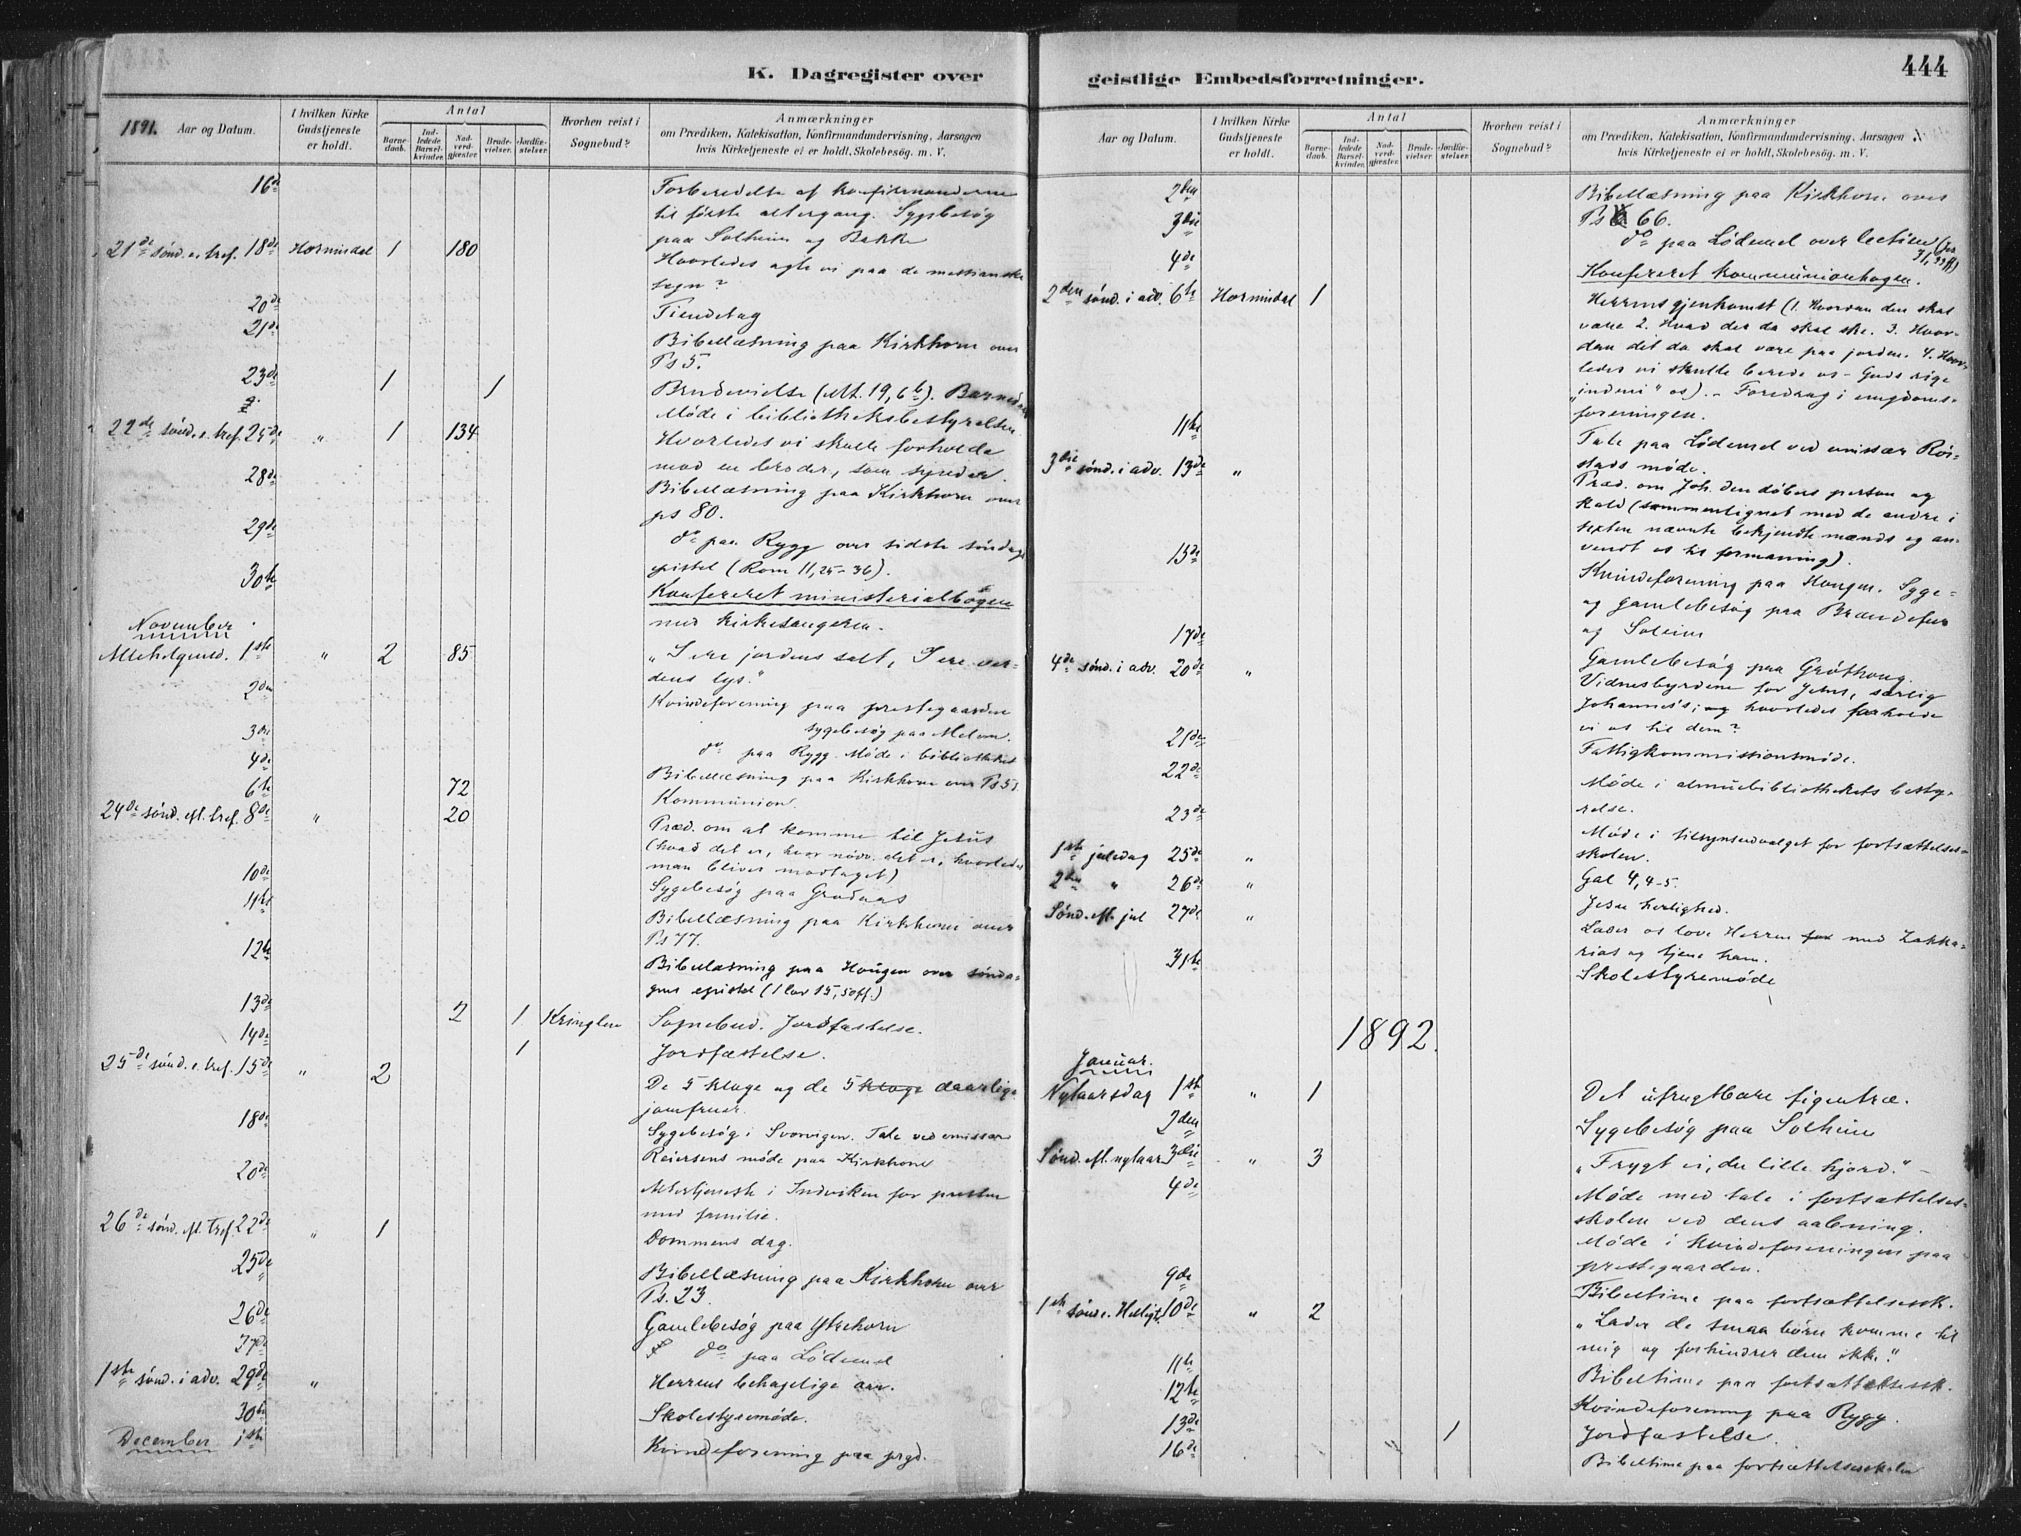 K. Dagregister over
1891. Aar og Datum.
I hvilken Kirke Gudstjeneste er holdt.
Antal
Barnedaab.
Indledede Barselkvinder.
Nadverdgjester.
Brudevielser.
Jordfæstelser.
Hvorhen reist i Sognebud?
Anmærkninger
om Prædiken, Katekisation, Konfirmandundervisning, Aarsagen
hvis Kirketjeneste ei er holdt, Skolebesøg. m. V.
16de Forberedelse af konfirmanderne
til første altergang. Sygebesøg
paa Solheim og Bakke
21de sønd. e. tref. 18de Hornindal 1 180 Hvorledes agte vi paa de messianske
tegn?
20de Tiendetag
21de Bibellæsning paa Kirkhorn over
Ps 5.
23de 1 1 Brudevielse (Mt. 19, 6b). Barnedaab
Møde i bibliotheksbestyrelsen
22de sønd. e. tref. 25de " 1 134 Hvorledes vi skulle forholde
mod en broder, som synder.
28de Bibellæsning paa Kirkhorn over
ps 80.
29de do paa Rygg over sidste søndags
epistel (Rom 11, 25-36).
30te Konfereret ministerialbogen
med kirkesangeren.
November
Allehelgensd. 1ste " 2 85 "I ere jordens salt, I ere ver-
dens lys."
2den Kvindeforening paa prestegaarden
sygebesøg paa Melom.
3die do paa Rygg. Møde i bibliotheket
4de Bibellæsning paa Kirkhorn over Ps 51.
6te 72 Kommunion.
24de sønd. ef. tref. 8de " 20 Præd. om at komme til Jesus
(hvad det er, hvor nødv. det er, hvorledes
man bliver modtaget)
10de Sygebesøg paa Grodaas
11te Bibellæsning paa Kirkhorn over
Ps 77.
12te Bibellæsning paa Haugen over sønda-
gens epistel (1 Cor 15, 50ff.)
13de 2 1 Kringlen Sognebud. Jordfæstelse.
14de 1 Jordfæstelse.
25de sønd. e. tref. 15de " 2 De 5 kloge og de 5 kloge daarlige
jomfruer.
18de Sygebesøg i Svorvigen. Tale ved emissær
Reiersens møde paa Kirkhorn
20de Altertjeneste i Indviken for presten
med familie.
26de sønd. ef. tref. 22de " 1 Dommens dag.
25de Bibellæsning paa Kirkhorn over
Ps. 23.
26de Gamlebesøg paa Ytrehorn
27de do paa Lødemel
1ste sønd. i adv. 29de " Herrens behagelige aar.
30te Skolestyremøde.
December 1ste Kvindeforening paa prgd.
geistlige Embedsforretninger.
444
Aar og Datum.
I hvilken Kirke Gudstjeneste er holdt.
Antal
Barnedaab.
Indledede Barselkvinder.
Nadverdgjester.
Brudevielser.
Jordfæstelser.
Hvorhen reist i Sognebud?
Anmærkninger
om Prædiken, Katekisation, Konfirmandundervisning, Aarsagen
hvis Kirketjeneste ei er holdt, Skolebesøg. m. V.
2den Bibellæsning paa Kirkhorn over
Ps 66.
3die do paa Lødemel over lectien (Jer
31, 33ff)
4de Konfereret kommunionbogen.
2den sønd. i adv. 6te Hornindal 1 Herrens gjenkomst (1. Hvordan den skal
være 2. Hvad der da skal ske. 3. Hvor-
dan det da skal være paa jorden. 4. Hvor-
ledes vi skulle berede os - Guds rige
"inden i" os). - Foredrag i ungdoms-
foreningen.
11te Tale paa Lødemel ved emissær Røi-
stads møde.
3die sønd. i adv. 13de " Præd. om Joh. den døbers person og
kald (sammenlignet med de andre i
texten nævnte bekjendte mænds og an-
vendt os til formaning).
15de Kvindeforening paa Haugen. Syge-
og gamlebesøg paa
og Soleim
17de Gamlebesøg paa Grøthaug.
4de sønd. i adv. 20de " Vidnesbyrdene for Jesus, særlig
Johannes's; og hvorledes forholde
vi os til dem?
21de Fattigkommissionsmøde.
22de Møde i almuebibliothekets besty-
relse.
23de Møde i tilsynsudvalget for fortsættelses-
skolen.
1ste juledag 25de " Gal 4, 4-5.
2den " 26de " Jesu herlighed.
Sønd. ef. jul 27de " Lader os love Herren for med Zakka-
rias og tjene ham.
31te Skolestyremøde
1892.
Januar.
Nytaarsdag 1ste " 1 Det ufrugtbare figentræ.
2den Sygebesøg paa Solheim
Sønd. ef. nytaar 3die " 3 "Frygt ei, du lille hjord." -
4de Møde med tale i fortsættelses-
skolen ved dens aabning.
Møde i kvindeforeningen paa
prestegaarden.
9de Bibeltime paa fortsættelsessk.
1ste sønd e. Helligt. 10de " 2 "Lader de smaa børn komme til
mig og forhindrer dem ikke."
11te Bibeltime paa fortsættelsessk.
12te Kvindeforening paa Rygg.
13de 1 Jordfæstelse.
16de Bibeltime paa fortsættelsesskolen